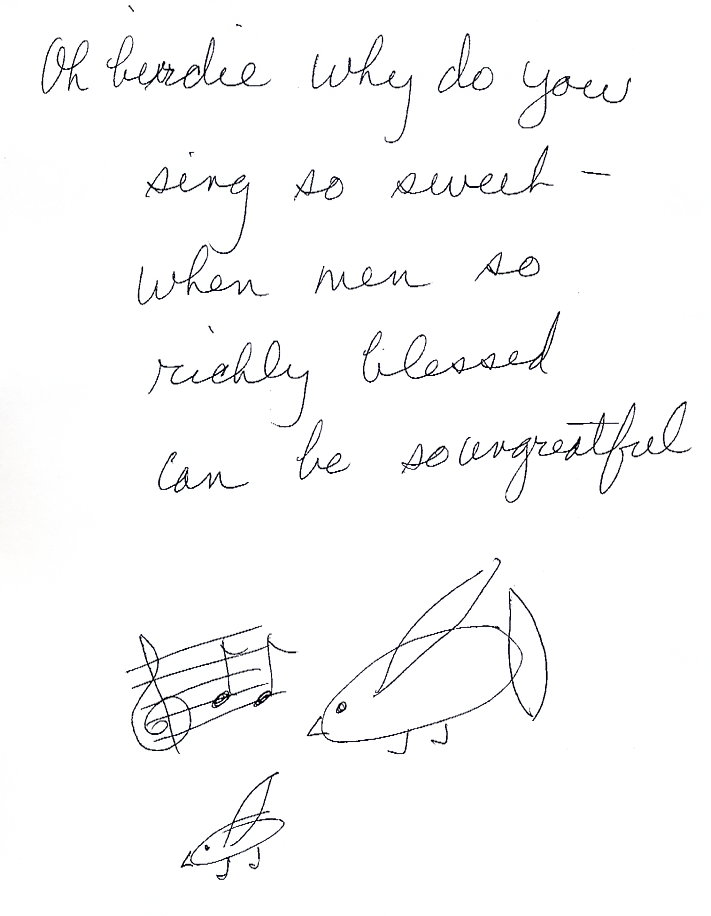 Oh birdie why do you
sing so sweet –
when men so
richly blessed
can be so ungreatful